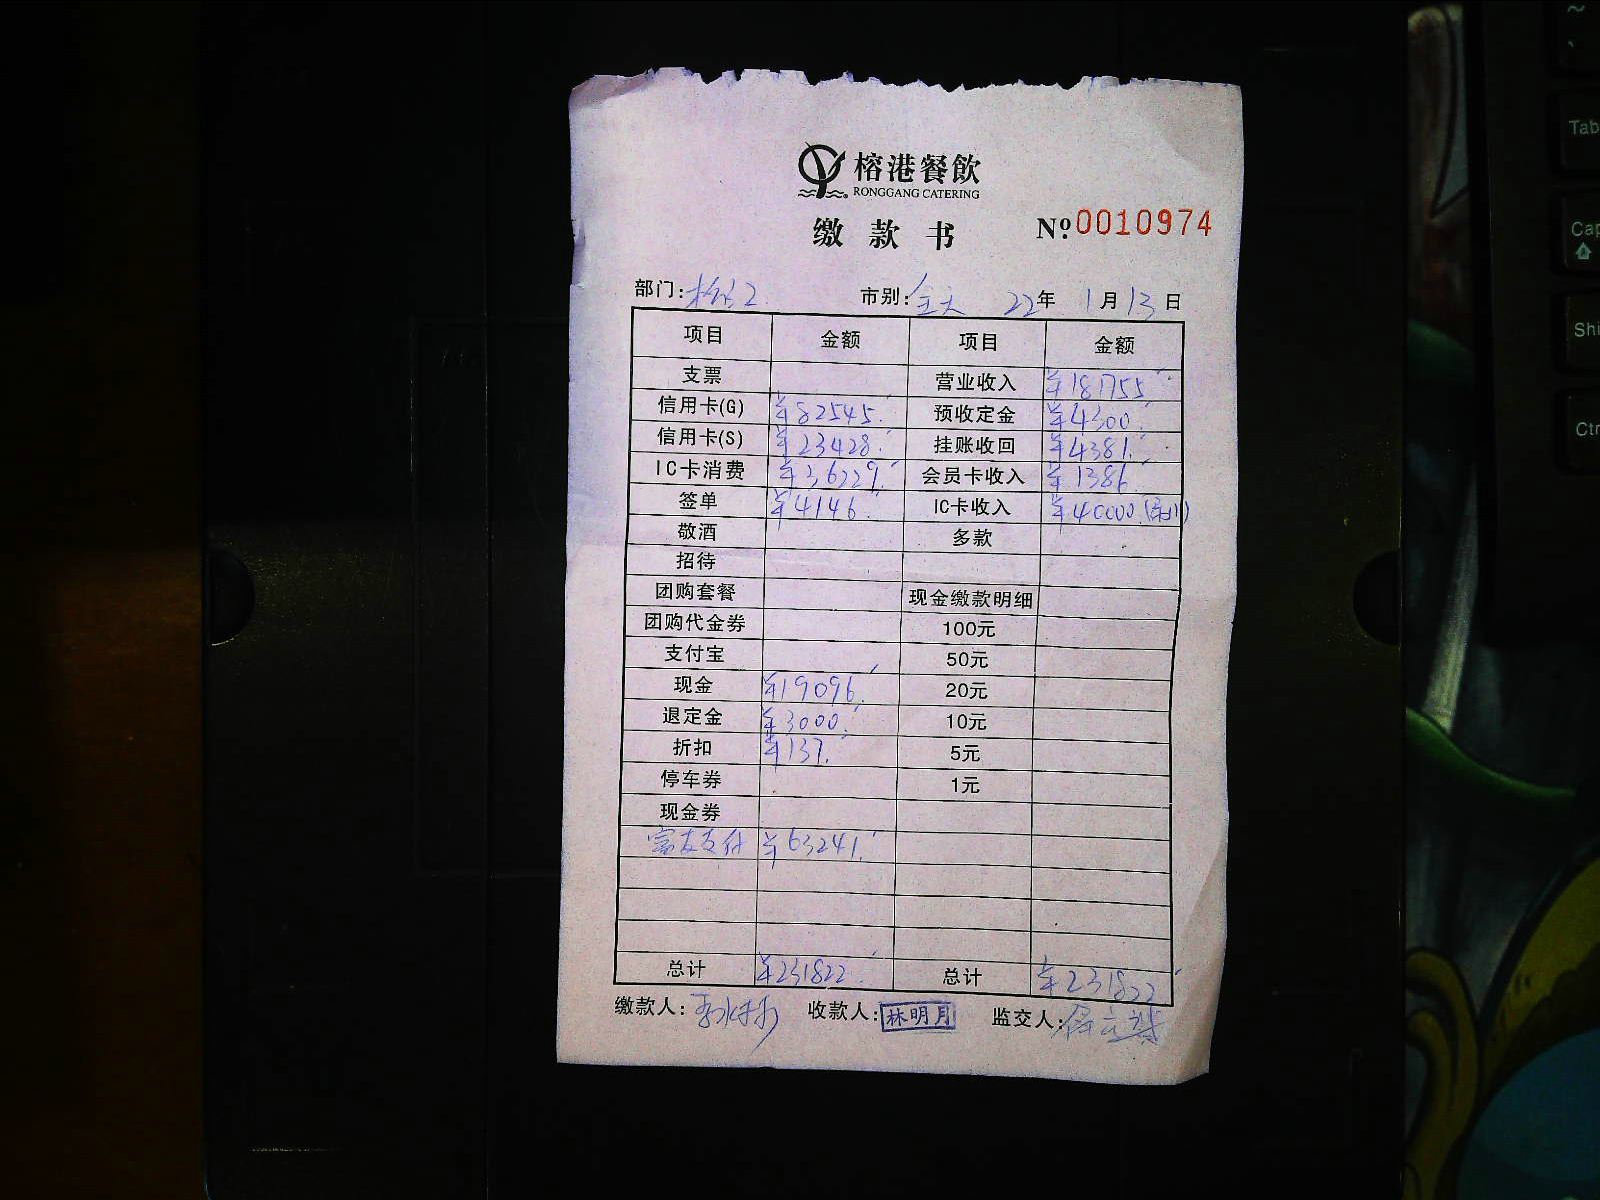 榕港餐飲
RONGGANG CATERING
缴款书 Nº 0010974
部门: 市别:全天 22年 1月13日
项目 金额 项目 金额
支票 营业收入 ¥181755.
信用卡(G) ¥82545. 预收定金 ¥4300.
信用卡(S) ¥23428. 挂账收回 ¥4381.
IC卡消费 ¥36229. 会员卡收入 ¥1386.
签单 ¥4146. IC卡收入 ¥40000.
敬酒 多款
招待
团购套餐 现金缴款明细
团购代金券 100元
支付宝 50元
现金 ¥19096. 20元
退定金 ¥3000. 10元
折扣 ¥137. 5元
停车券 1元
现金券
富友支付 ¥63241.
总计 ¥231822. 总计 ¥231822
缴款人: 收款人:林明月 监交人:
Tab
Cap
Shi
Ctr